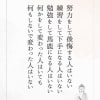 努力をして後悔する人はいない
練習をして下手になる人はいない
勉強をして馬鹿になる人はいない
何かをして変わらない人はいない
何もしないで変わった人はいない